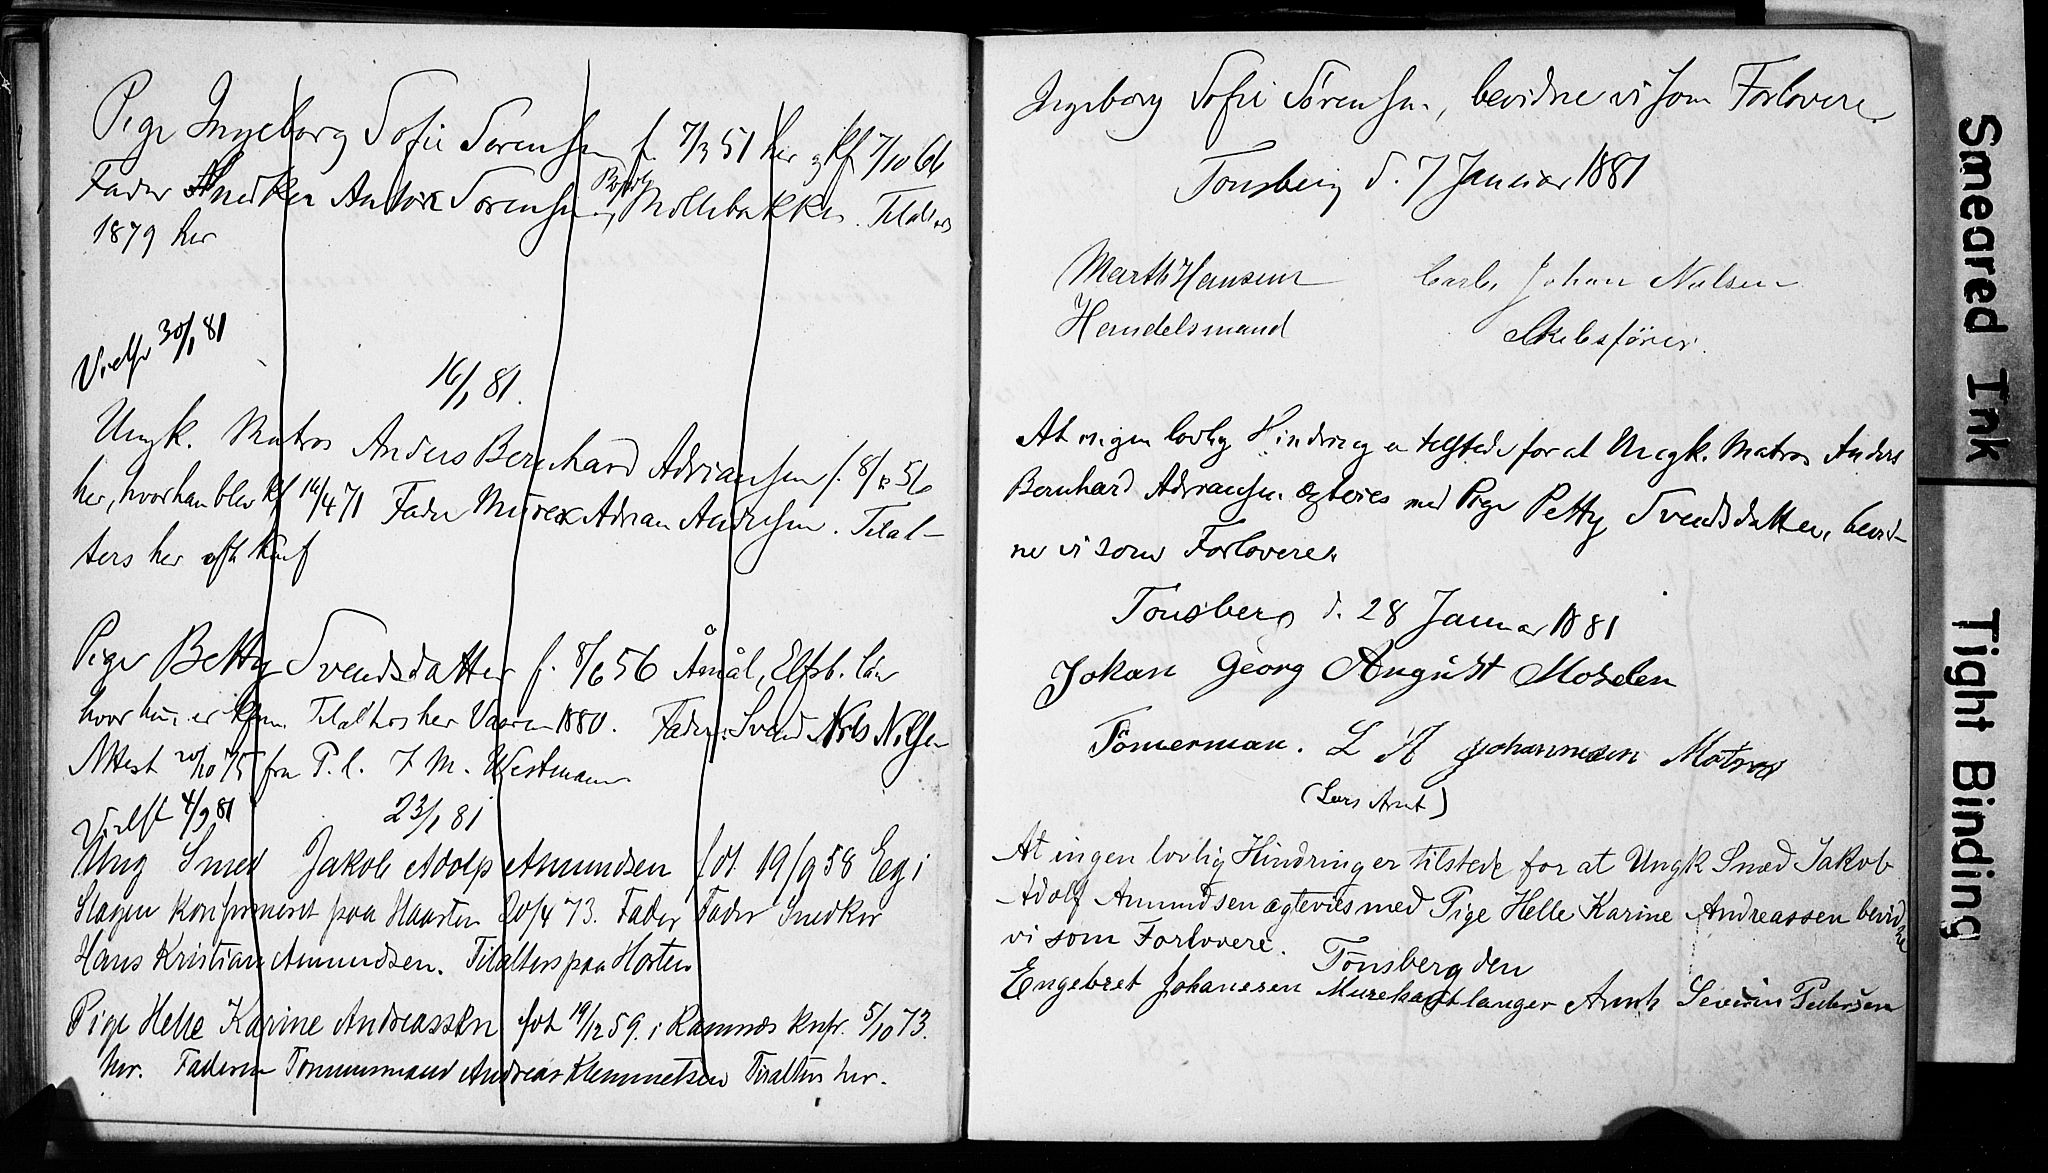 Pige Ingeborg Sofie Sørensen f. 7/3 51 her og kf 7/10 66
Fader Snedker Anton Sørensen, Møllebakken. Tilalters
1879 her
Vielse 30/1 81
16/1 81.
Ungk. Matros Anders Bernhard Adriansen f. 8/12 56
her, hvor han blev kf 16/4 71 Fader Murer Adrian Andersen. Tilal-
ters her efter Konf
Pige Betty Svendsdatter f. 8/6 56 Åmål, Elfsb. län
hvor hun er Konf. Tilalters her Vaaren 1880. Fader: Svend Nils Nilsen
Attest 20/10 75 fra P. l. F. M. Westmann
Vielse 4/9 81
23/1 81
Ung Smed Jakob Adolp Amundsen fdt. 19/9 58 Eeg i
Slagen konfirmeret paa Haarten 20/4 73. Fader Fader Snedker
Hans Kristian Amundsen. Tilalters paa Horten
Pige Helle Karine Andreassen fdt 19/12 59. i Ramnæs knfr. 5/10 73.
her. Faderen Tømmermand Andreas Klemmetsen Tilalters her.
Ingeborg Sofie Sørensen, bevidne vi som Forlovere.
Tønsberg d. 7 Januar 1881
Marth Hansen Carl Johan Nilsen
Handelsmand Skibsfører.
At ingen lovlig Hindring er tilstede for at Ungk. Matros Anders
Bernhard Adriansen ægtevies med Pige Petty Svendsdatter, bevid-
ne vi som Forlovere.
Tønsberg d. 28 Januar 1881
Johan Georg August Moslen
Tömerman. L A Johannesen Matros
(Lars Arnt)
At ingen lovlig Hindring er tilstede for at Ungk Smed Jakob
Adolf Amundsen ægtevies med Pige Helle Karine Andreassen bevidne
vi som Forlovere. Tønsberg den
Engebret Johanesen Murehaandlanger Arnt Severin Pedersen
Smeared Ink
Tight Binding